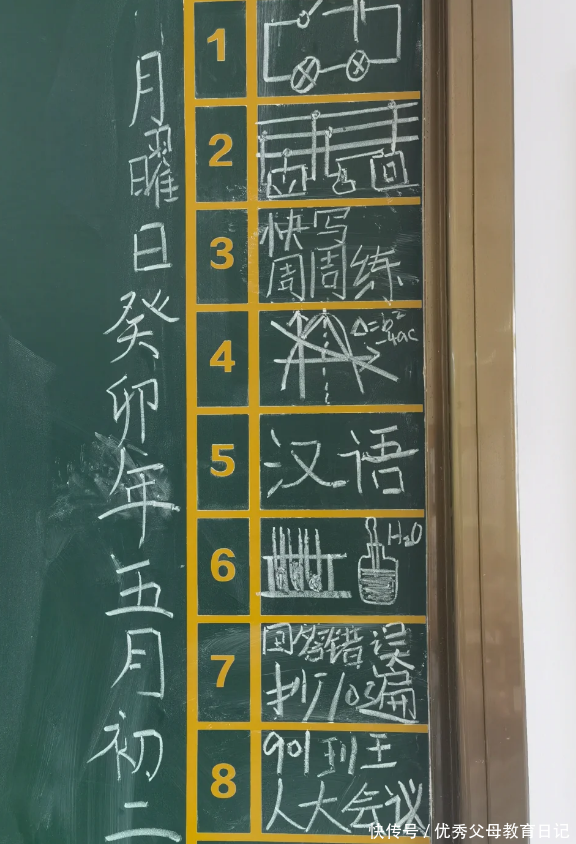 月曜日癸卯年五月初二
1
2
3
快写
周周练
4
Δ=b²
-4ac
5
汉语
6
H₂O
7
回答错误
10遍
8
901班王
人大会议
快传号 / 优秀父母教育日记